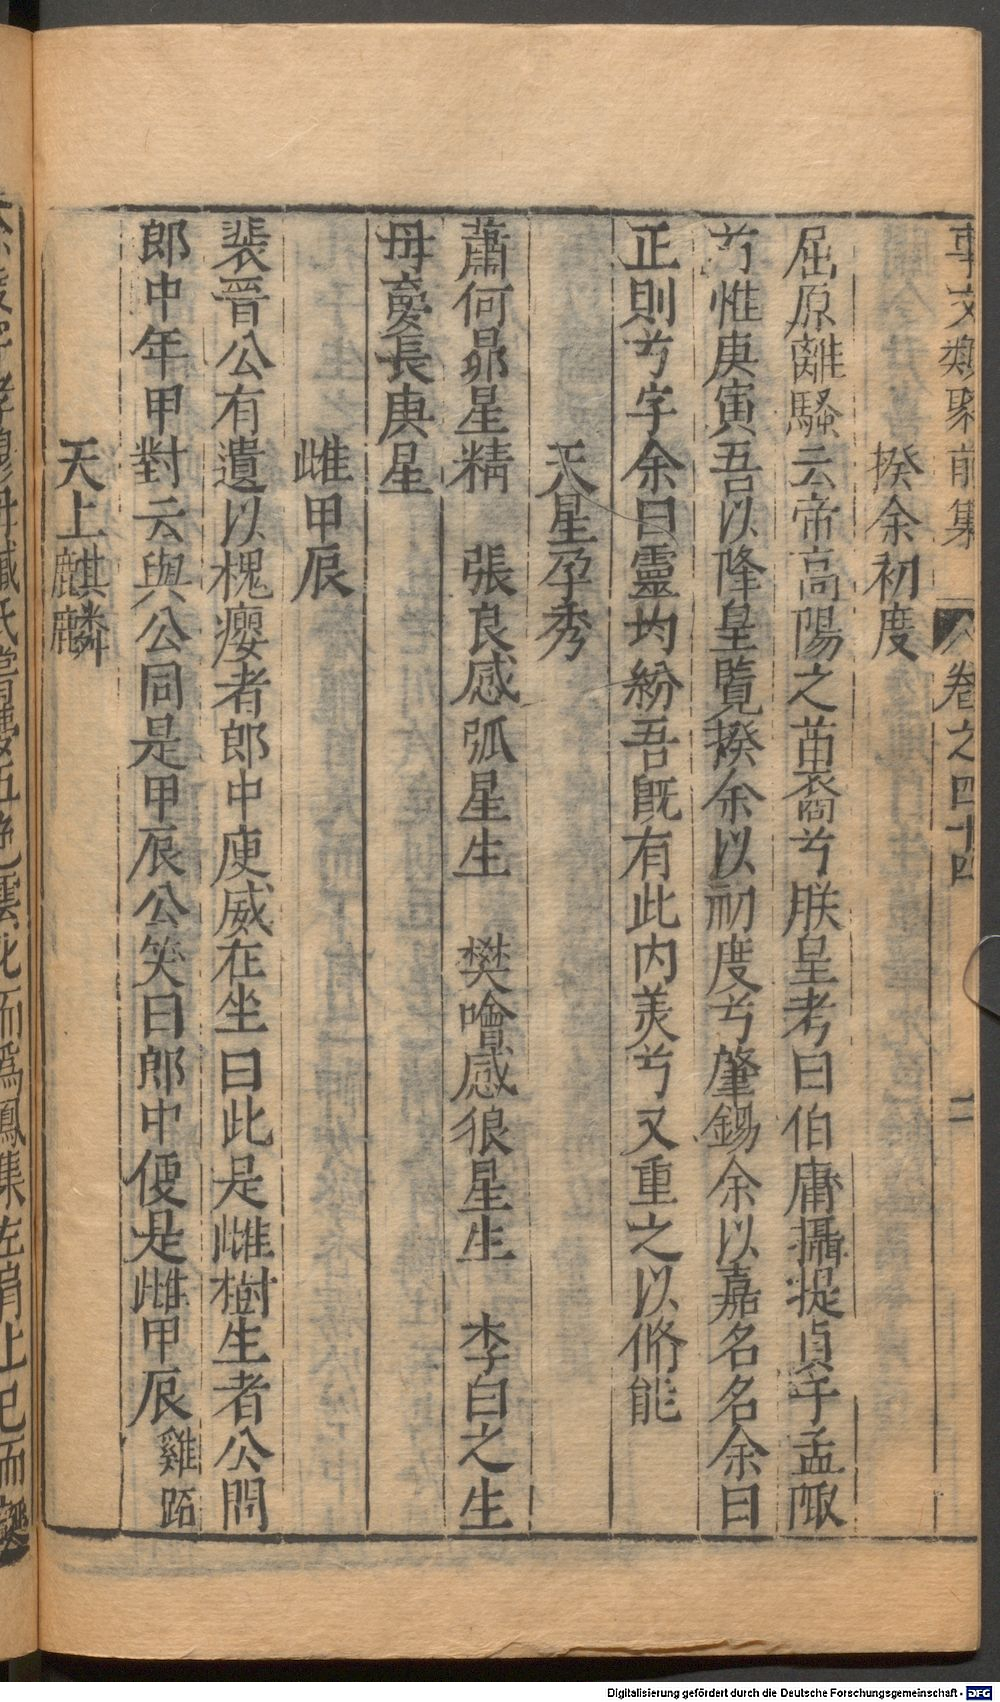 事文類聚前集 卷之四十四 二
揆余初度
屈原離騷云帝高陽之苗裔兮朕皇考曰伯庸攝提貞于孟陬
兮惟庚寅吾以降皇覽揆余以初度兮肇錫余以嘉名名余曰
正則兮字余曰靈均紛吾旣有此内美兮又重之以脩能
天星孕秀
蕭何昴星精 張良感弧星生 樊噲感狼星生 李白之生
母夢長庚星
雌甲辰
裴晉公有遺以槐癭者郎中庾威在坐曰此是雌樹生者公問
郎中年甲對云與公同是甲辰公笑曰郎中便是雌甲辰 雞跖
天上麒麟
Digitalisierung gefördert durch die Deutsche Forschungsgemeinschaft - DFG